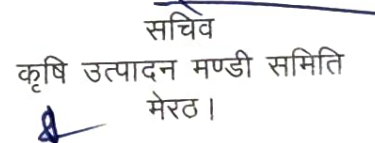 सचिव
कृषि उत्पादन मण्डी समिति
मेरठ।